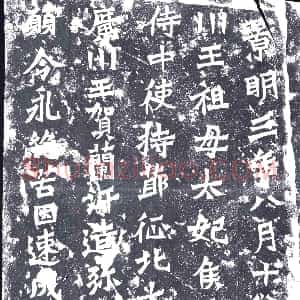 景明三年八月十
川王祖母太妃侯
侍中使持節征北大
廣川王賀蘭汗造弥
願令永絕苦因速成